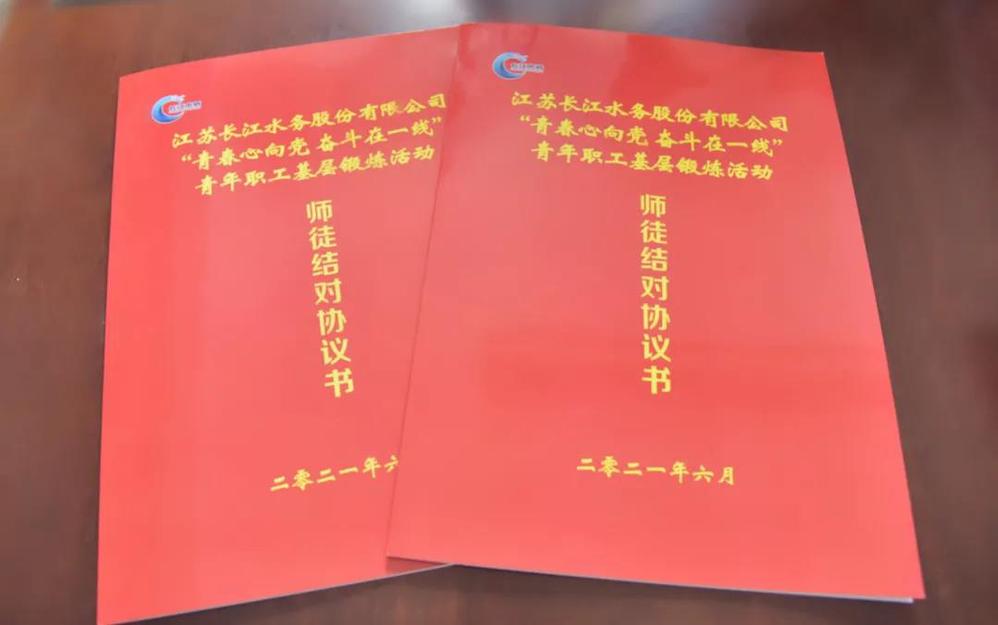 江苏长江水务股份有限公司
“青春心向党 奋斗在一线”
青年职工基层锻炼活动
师徒结对协议书
二零二一年六
江苏长江水务股份有限公司
“青春心向党 奋斗在一线”
青年职工基层锻炼活动
师徒结对协议书
二零二一年六月